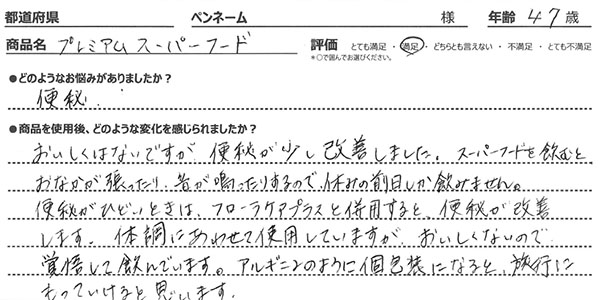 都道府県 ペンネーム 様 年齢 47 歳
商品名 プレミアムスーパーフード 評価 とても満足 ・ 満足 ・ どちらとも言えない ・ 不満足 ・ とても不満足
*○で囲んでお選びください。
●どのようなお悩みがありましたか?
便秘.
●商品を使用後、どのような変化を感じられましたか?
おいしくはないですが 便秘が少し改善しました。スーパーフードを飲むと、
おなかが張ったり、音が鳴ったりするので、休みの前日しか飲みません。
便秘がひどいときは、フローラケアプラスと併用すると、便秘が改善
します。体調にあわせて使用していますが、おいしくないので
覚悟して飲んでいます。アルギニンのように個包装になると、旅行に
もっていけると思います.